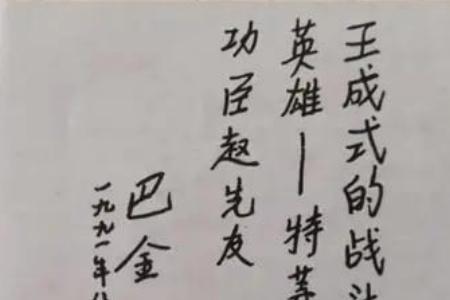 王成式的战斗
英雄—特等
功臣赵先友
巴金
一九九一年八